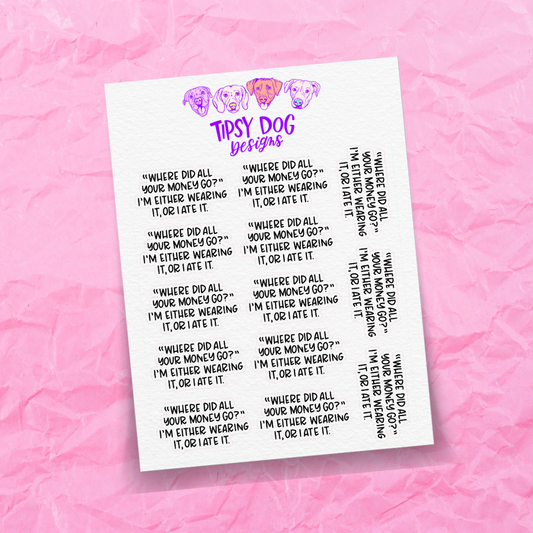 TIPSY DOG
Designs
"WHERE DID ALL
YOUR MONEY GO?"
I'M EITHER WEARING
IT, OR I ATE IT.
"WHERE DID ALL
YOUR MONEY GO?"
I'M EITHER WEARING
IT, OR I ATE IT.
"WHERE DID ALL
YOUR MONEY GO?"
I'M EITHER WEARING
IT, OR I ATE IT.
"WHERE DID ALL
YOUR MONEY GO?"
I'M EITHER WEARING
IT, OR I ATE IT.
"WHERE DID ALL
YOUR MONEY GO?"
I'M EITHER WEARING
IT, OR I ATE IT.
"WHERE DID ALL
YOUR MONEY GO?"
I'M EITHER WEARING
IT, OR I ATE IT.
"WHERE DID ALL
YOUR MONEY GO?"
I'M EITHER WEARING
IT, OR I ATE IT.
"WHERE DID ALL
YOUR MONEY GO?"
I'M EITHER WEARING
IT, OR I ATE IT.
"WHERE DID ALL
YOUR MONEY GO?"
I'M EITHER WEARING
IT, OR I ATE IT.
"WHERE DID ALL
YOUR MONEY GO?"
I'M EITHER WEARING
IT, OR I ATE IT.
"WHERE DID ALL
YOUR MONEY GO?"
I'M EITHER WEARING
IT, OR I ATE IT.
"WHERE DID ALL
YOUR MONEY GO?"
I'M EITHER WEARING
IT, OR I ATE IT.
"WHERE DID ALL
YOUR MONEY GO?"
I'M EITHER WEARING
IT, OR I ATE IT.